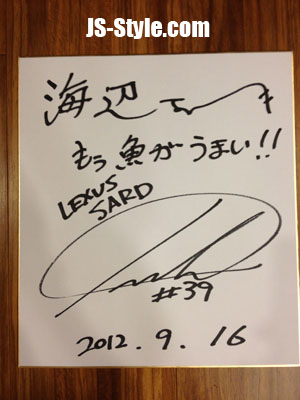 JS-Style.com
海辺
もう魚がうまい!!
LEXUS
SARD
#39
2012.9.16